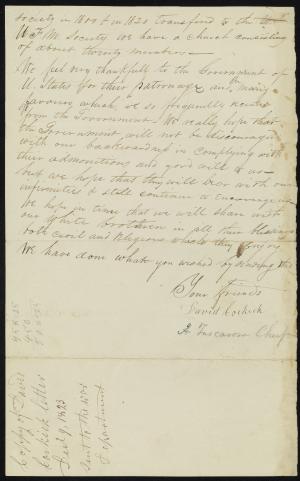 society in 1800 & in 1820 transfired to the
U F M Society we have a church consisting
of about twenty members.
We feel very thankfully to the Government of
U. States for their patronage and many
favours which we so frequently receive
from the Government. We really hope that
the Government will not be discouraged
with our backwardness in complying with
their admonitions and good will to us
but we hope that they will bear with our
infirmities & still continue to encourage us
We hope in time that we will share with
our White brethren in all their blessings
both civil and Religious which they enjoy
We have done what you wished by sending this
Your friends
David Cusick
A Tuscarora Chief
Copy of David
Cusick letter
Jan 9. 1823
sent to the War
Department